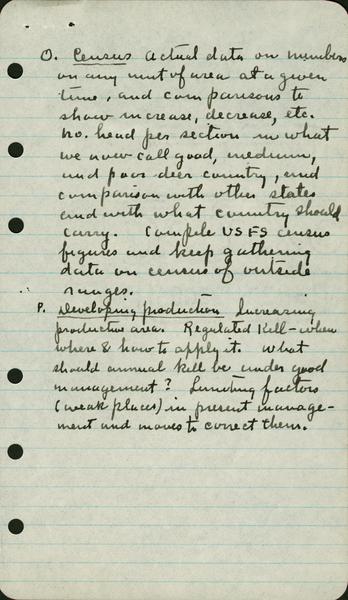 O. Census actual data on numbers
on any unit of area at a given
time, and comparisons to
show increase, decrease, etc.
No. head per section in what
we now call good, medium,
and poor deer country, and
comparison with other states
and with what country should
carry. Compile USFS census
figures and keep gathering
data on census of outside
ranges.
P. Developing production Increasing
productive area. Regulated kill - when
where & how to apply it. What
should annual kill be under good
management? Limiting factors
(weak places) in present manage-
ment and moves to correct them.